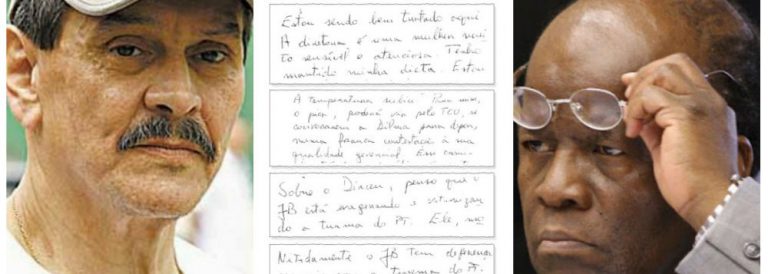 Estou sendo bem tratado aqui
A diretora é uma mulher mui
to sensível e atenciosa. Tenho
mantido minha dieta. Estou
A temperatura subiu? Para mim,
o pior, poderá vir pelo TCU, se
a Dilma para depor,
numa franca contestação à sua
qualidade gerencial. Em
Sobre o Dirceu, penso que o
JB está exagerando e vitimizan
do a turma do PT. Ele,
Nitidamente o JB tem
a turma do PT.